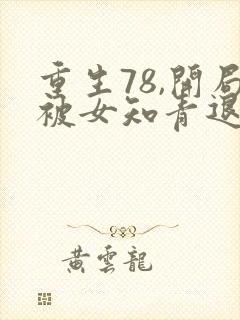 重生78,開局
被女知青退
黃雲龍